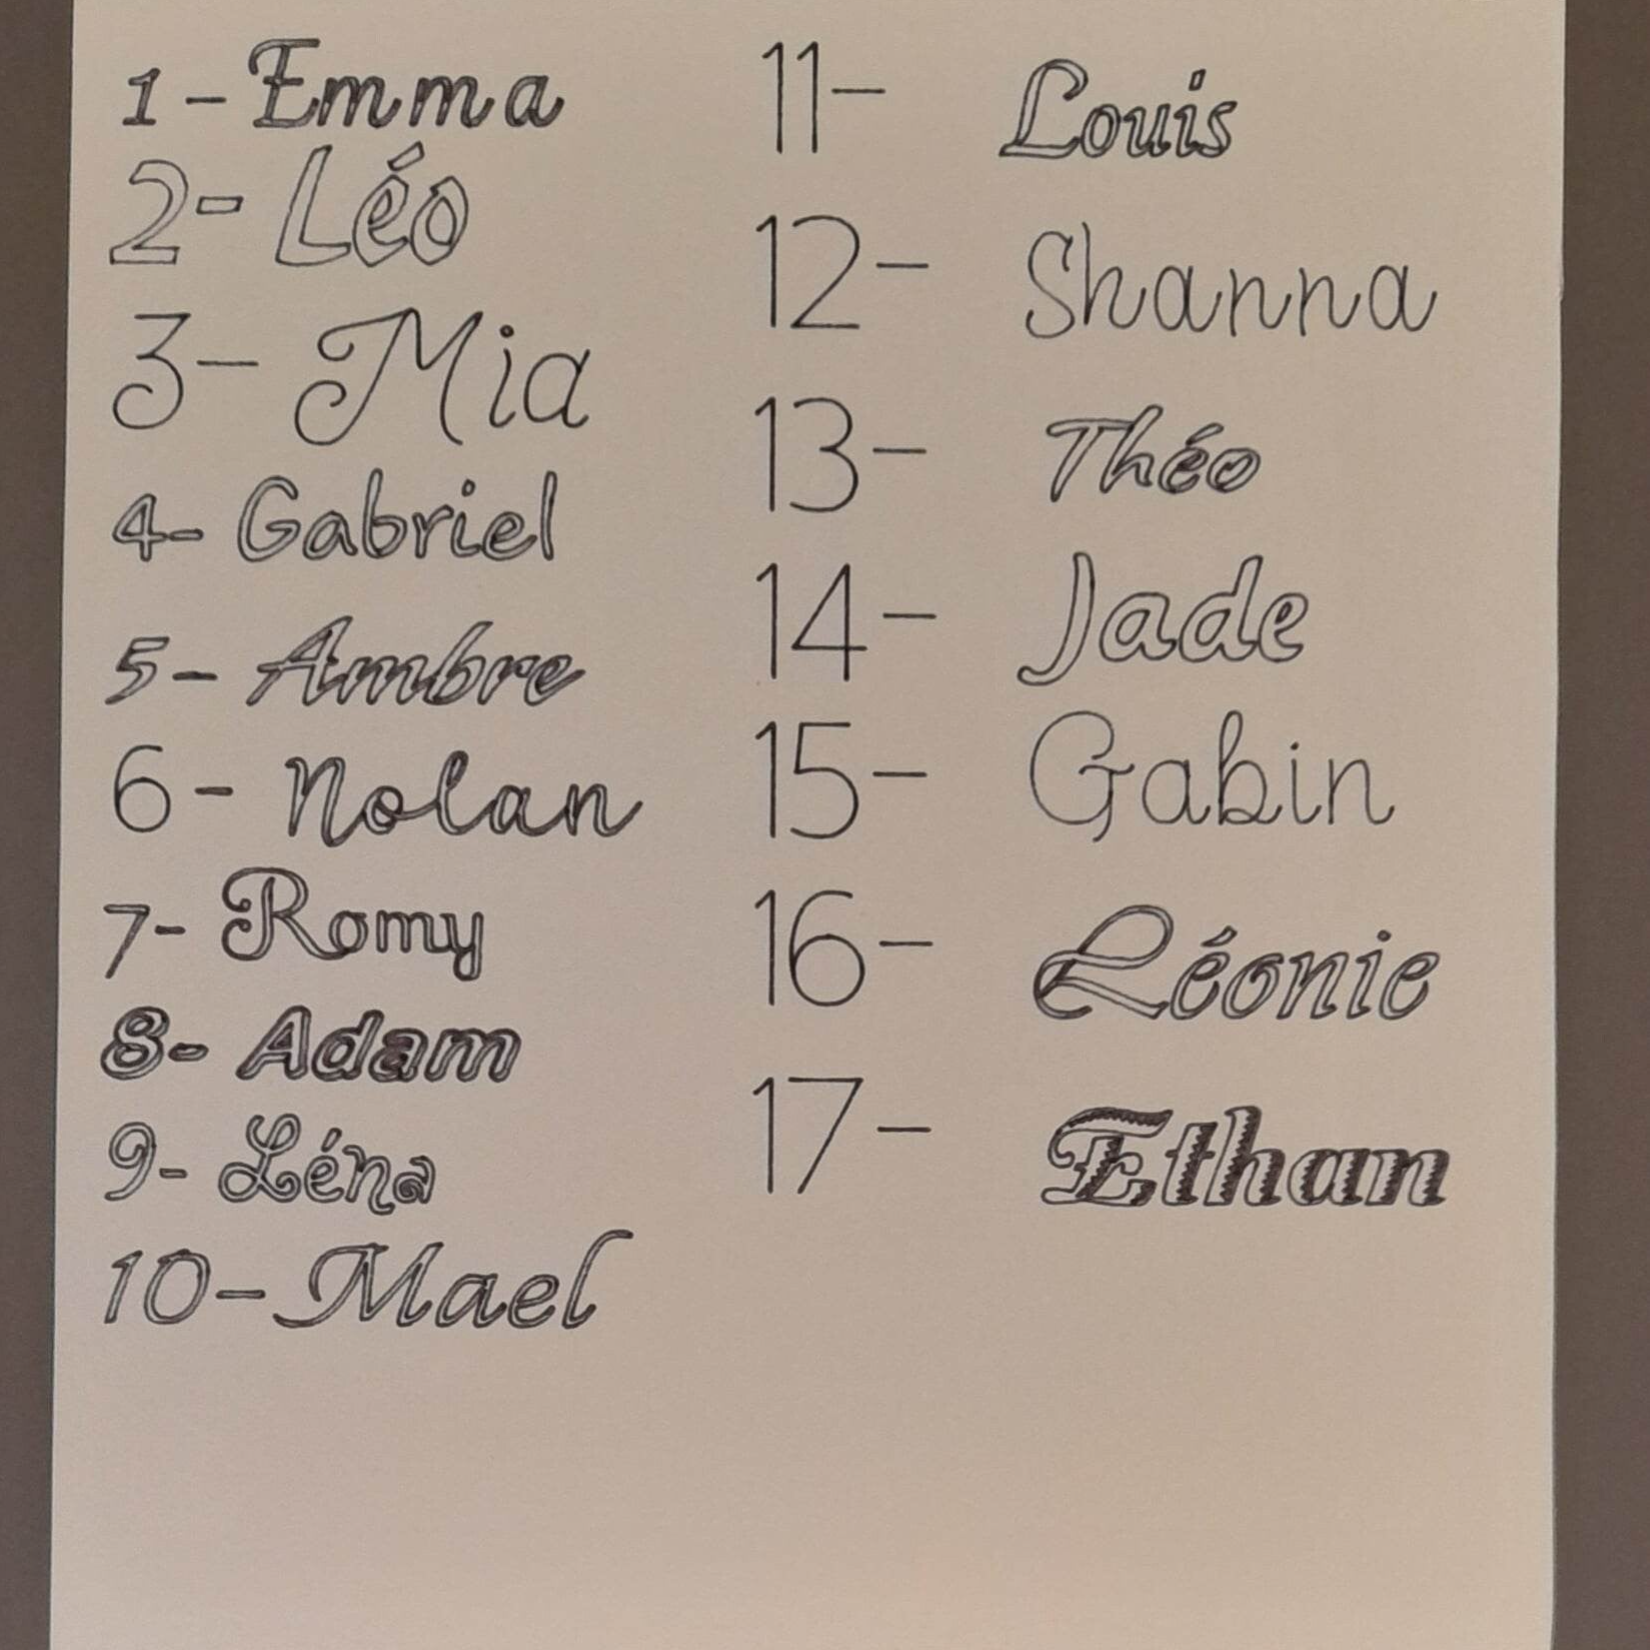 1 - Emma
2- Léo
3- Mia
4- Gabriel
5- Ambre
6 - Nolan
7- Romy
8- Adam
9- Léna
10- Mael
11- Louis
12- Shanna
13- Théo
14- Jade
15- Gabin
16- Léonie
17- Ethan